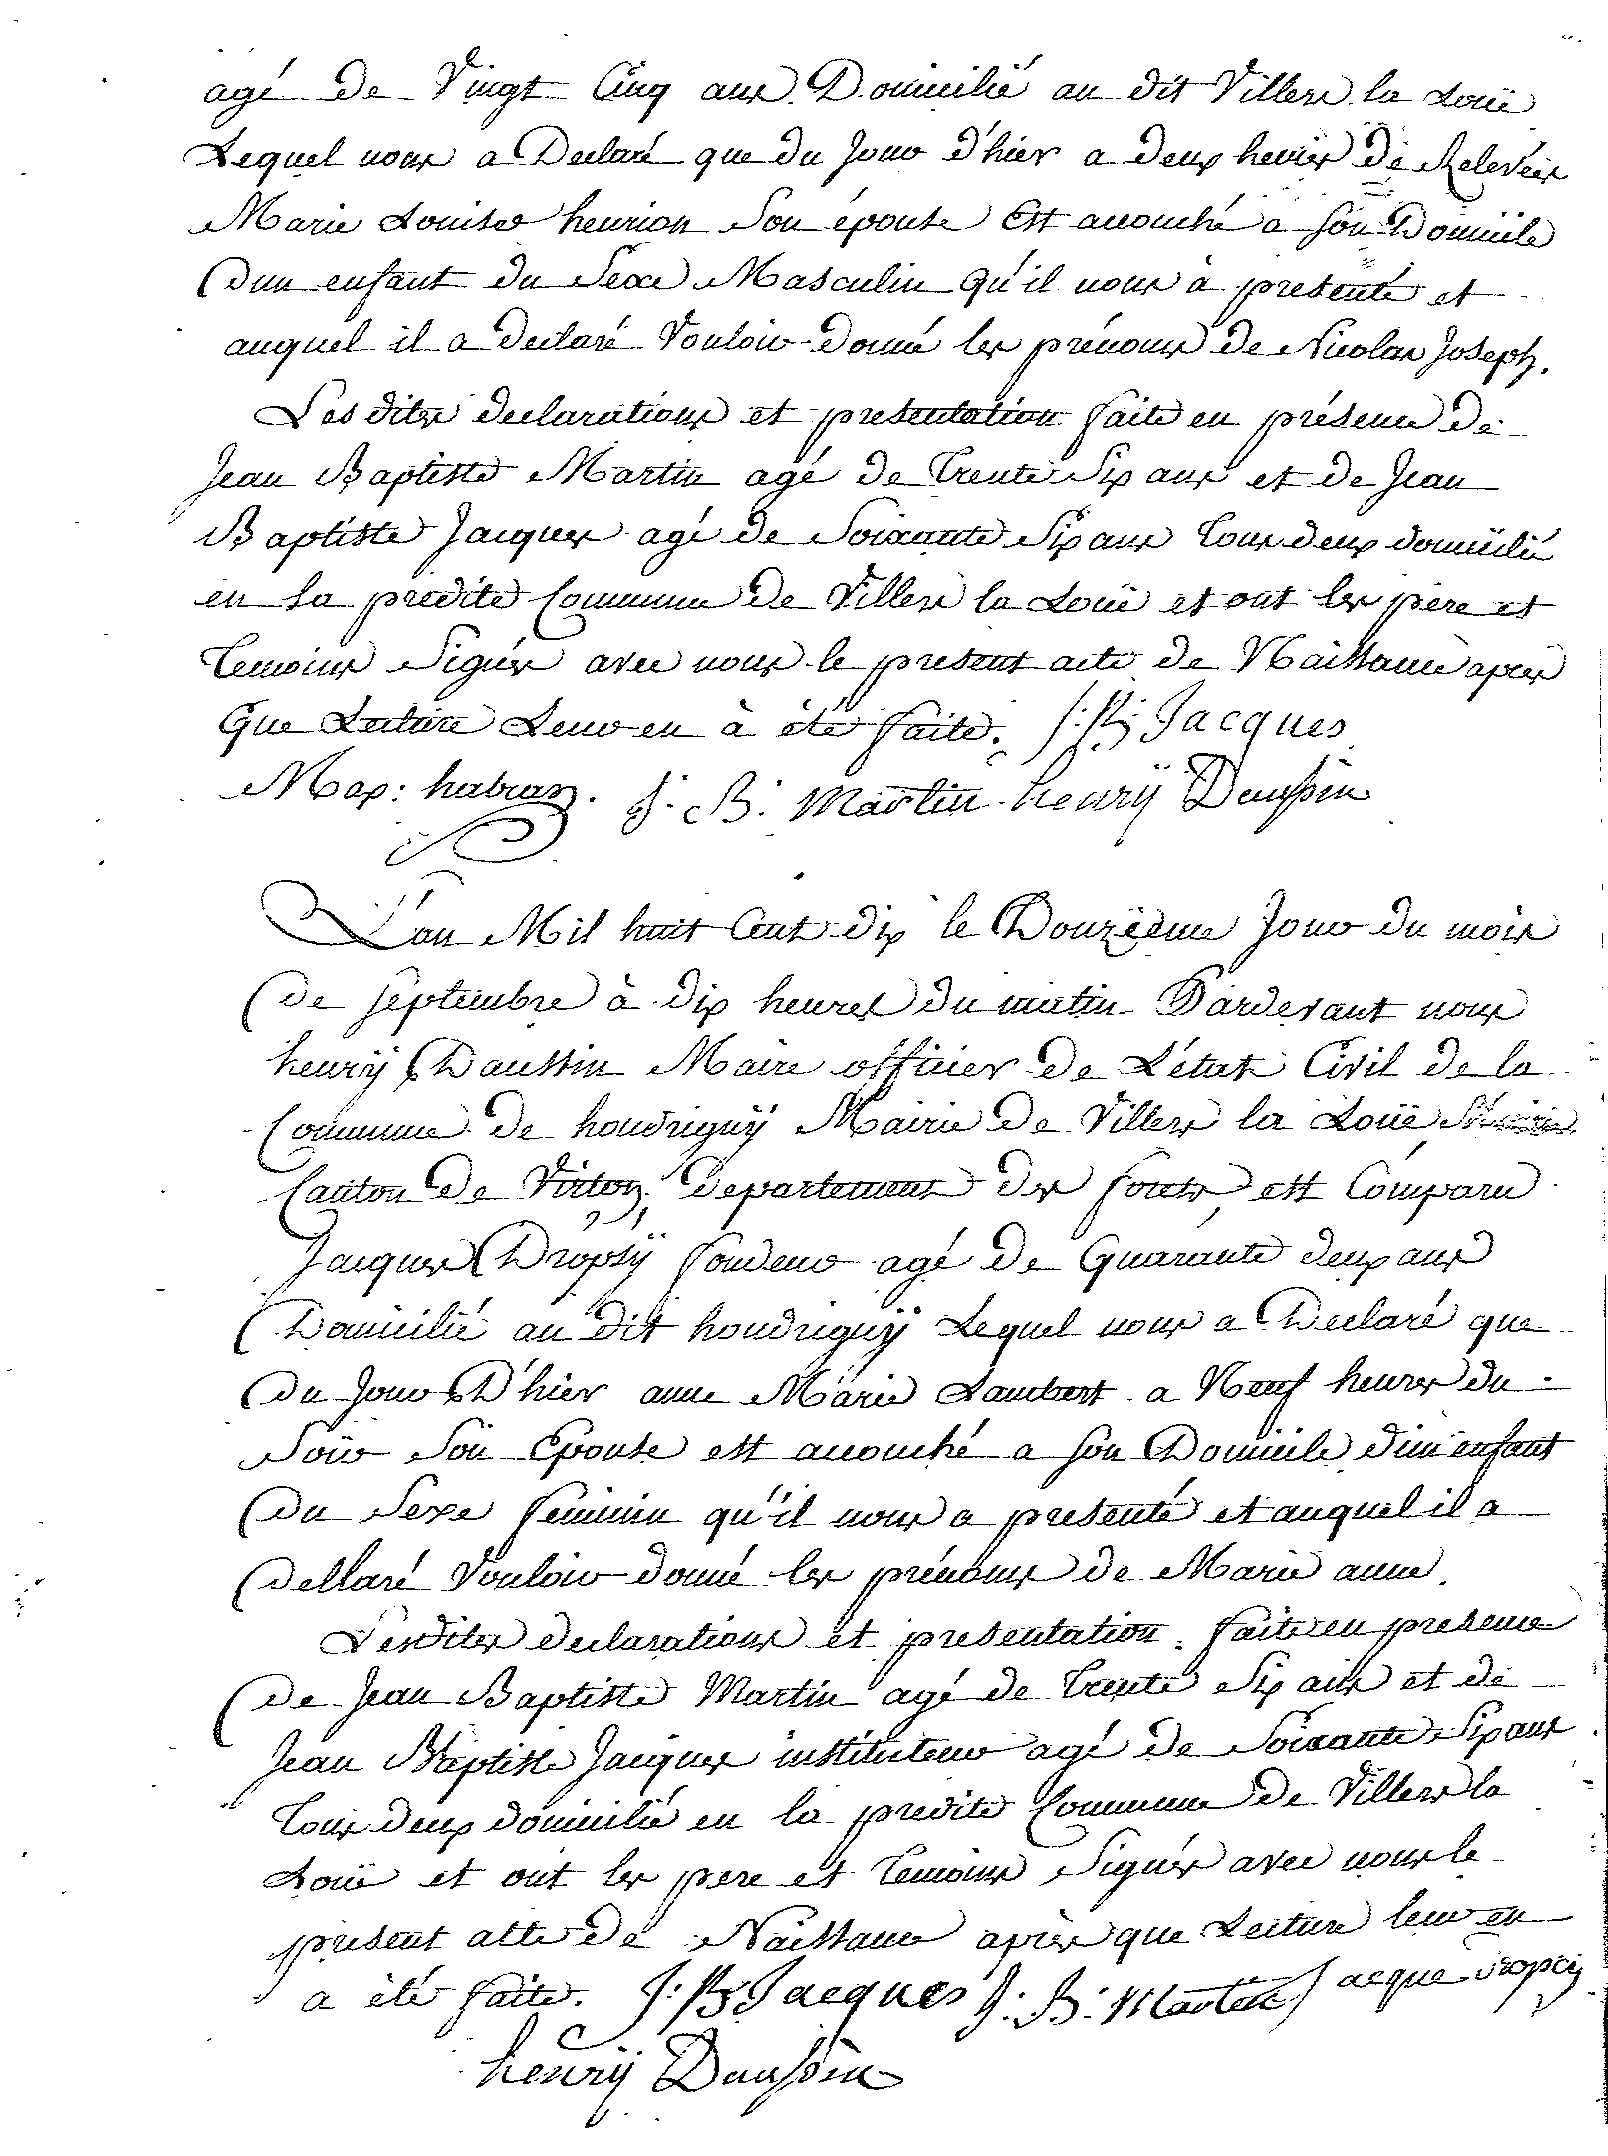 agé de Vingt Cinq ans Domicilié au dit Villers la Loüe
Lequel nous a Declaré que du Jour d'hier a deux heures de Relevées
Marie Louise henrion Son épouse Est accouché a son Domicile
dun enfant du Sexe Masculin qu'il nous à presenté et
auquel il a declaré Vouloir donné les prénoms de Nicolas Joseph.
Les dites declarations et presentation faite en présence de
Jean Baptiste Martin agé de Trente Six ans et de Jean
Baptiste Jacques agé de Soixante Six ans Tous deux domicilié
en la predite Commune de Villers la Loüe et ont les père et
Temoins Signés avec nous le present acte de Naissance après
que Lecture Leur en à été faite. J: B: Jacques
Max: habran. J. B. Martin henrÿ Daussin
L'an Mil huit Cent dix le Douzième Jour du mois
de septembre à dix heures du matin Pardevant nous
henrÿ Daussin Maire officier de L'état Civil de la
Commune de houdrignÿ Mairie de Villers la Loüe
Canton de Virton, departement des forets, est Comparu
Jacques Dropsÿ fondeur agé de Quarante deux ans
Domicilié au dit houdrignÿ Lequel nous a Declaré que
du Jour D'hier anne Marie Lambert a Neuf heures du
Soir Son Epouse est accouché a son Domicile d'un enfant
du Sexe feminin qu'il nous a presenté et auquel il a
dellaré Vouloir donné les prénoms de Marie anne.
Lesdites declarations et presentation faite en presence
de Jean Baptiste Martin agé de Trente Six ans et de
Jean Baptiste Jacques instituteur agé de Soixante Six ans
Tous deux domicilié en la predite Commune de Villers la
Loüe et ont les pere et Temoins Signés avec nous le
present atte de Naissance après que Lecture leur en
a été faite. J: B Jacques J: B: Martin Jacque Dropcy
henrÿ Daussin